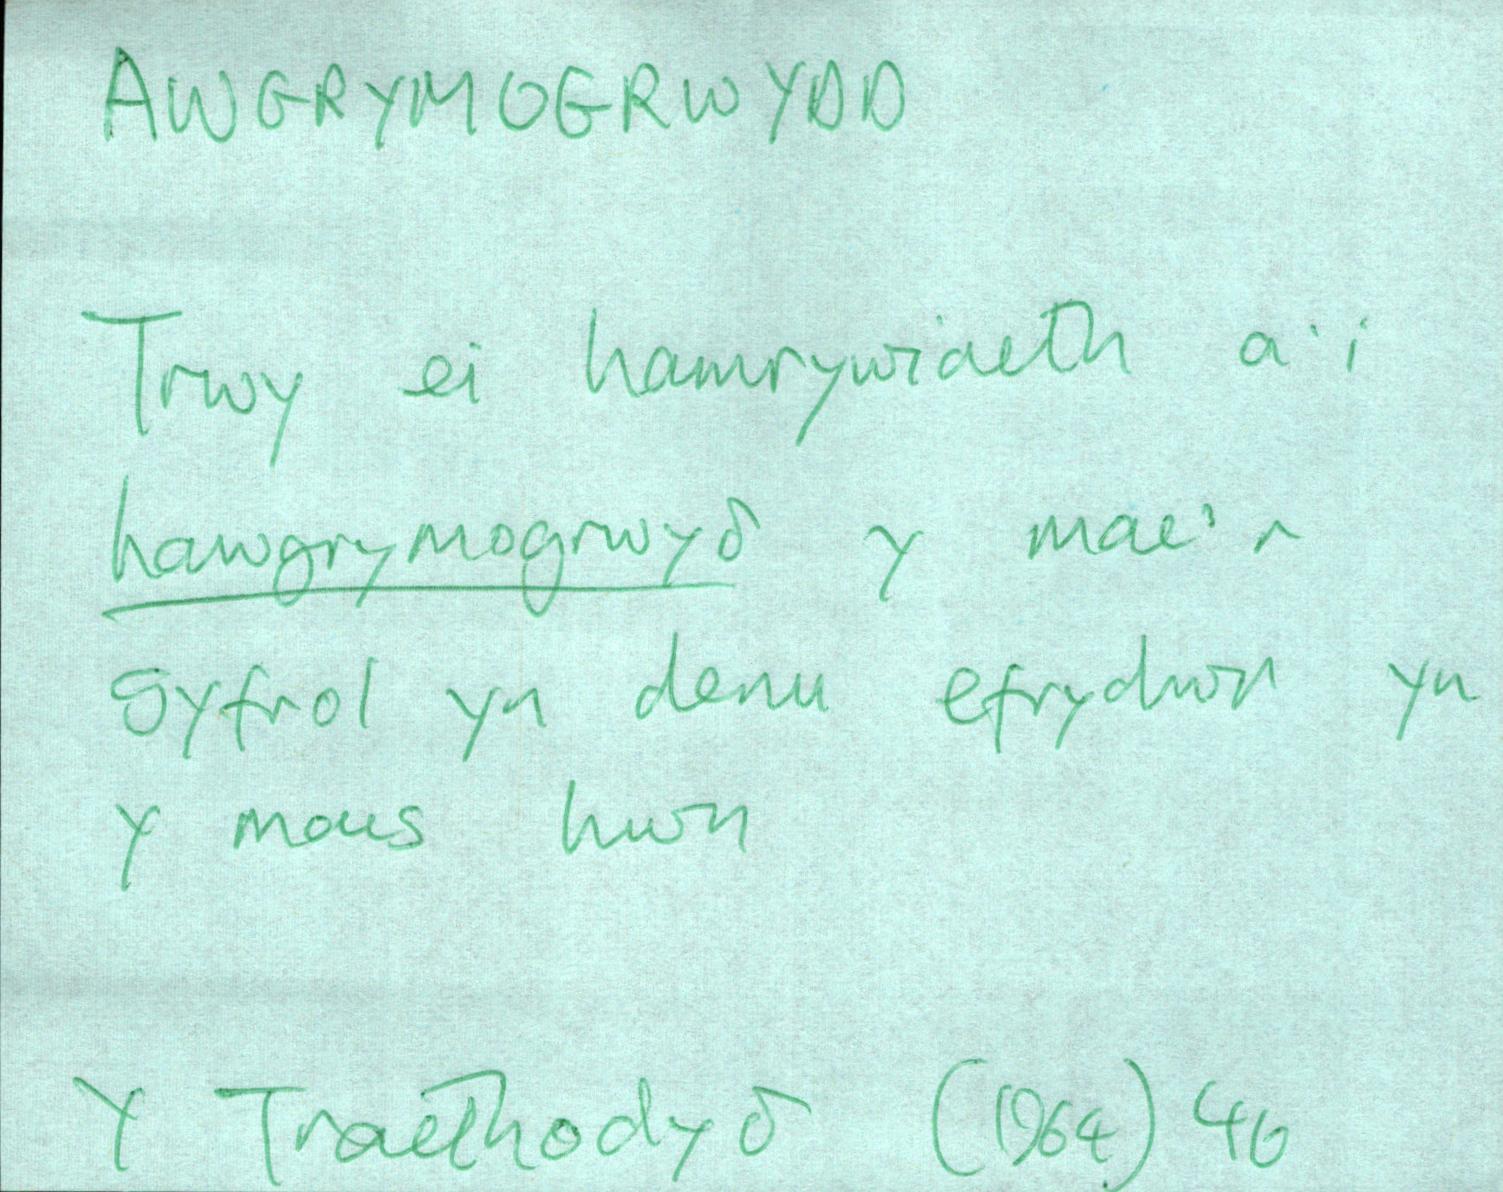 AWGRYMOGRWYDD
Trwy ei hamrywiaeth a'i
hawgrymogrwyδ y mae'r
gyfrol yn denu efrydwn yn
y maes hwn
Y Traethodyδ (1964) 46